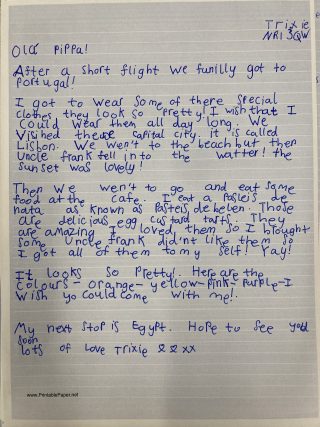 Trixie
NR1 3QW
Ola Pippa!
After a short flight we funilly got to
Portugal!
I got to wear some of there special
clothes, they look so pretty! I wish that I
could wear them all day long. We
visihed there capital city. it is called
Lisbon. We wen't to the beach but then
Uncle frank fell into the watter! the
sunset was lovely!
Then we wen't to go and eat some
food at the cafe. I eat a Pasteis de
nata as known as Pasteis de belen. Those
are delicious egg custard tarts. They
are amazing I loved them so I brought
some Uncle Frank did'nt like them so
I got all of them to my self! Yay!
It looks so Pretty!. Here are the
colours - orange - yellow - Pink - Purple - I
wish yo could come with me!.
My next stop is Egypt. Hope to see you
soon
lots of love Trixie xx
www.PrintablePaper.net